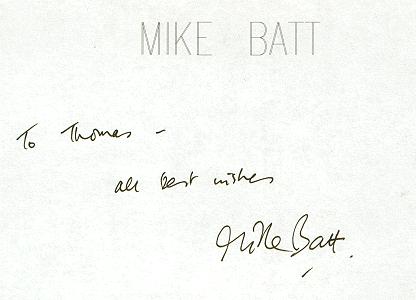 MIKE BATT
To Thomas -
all best wishes
Mike Batt.